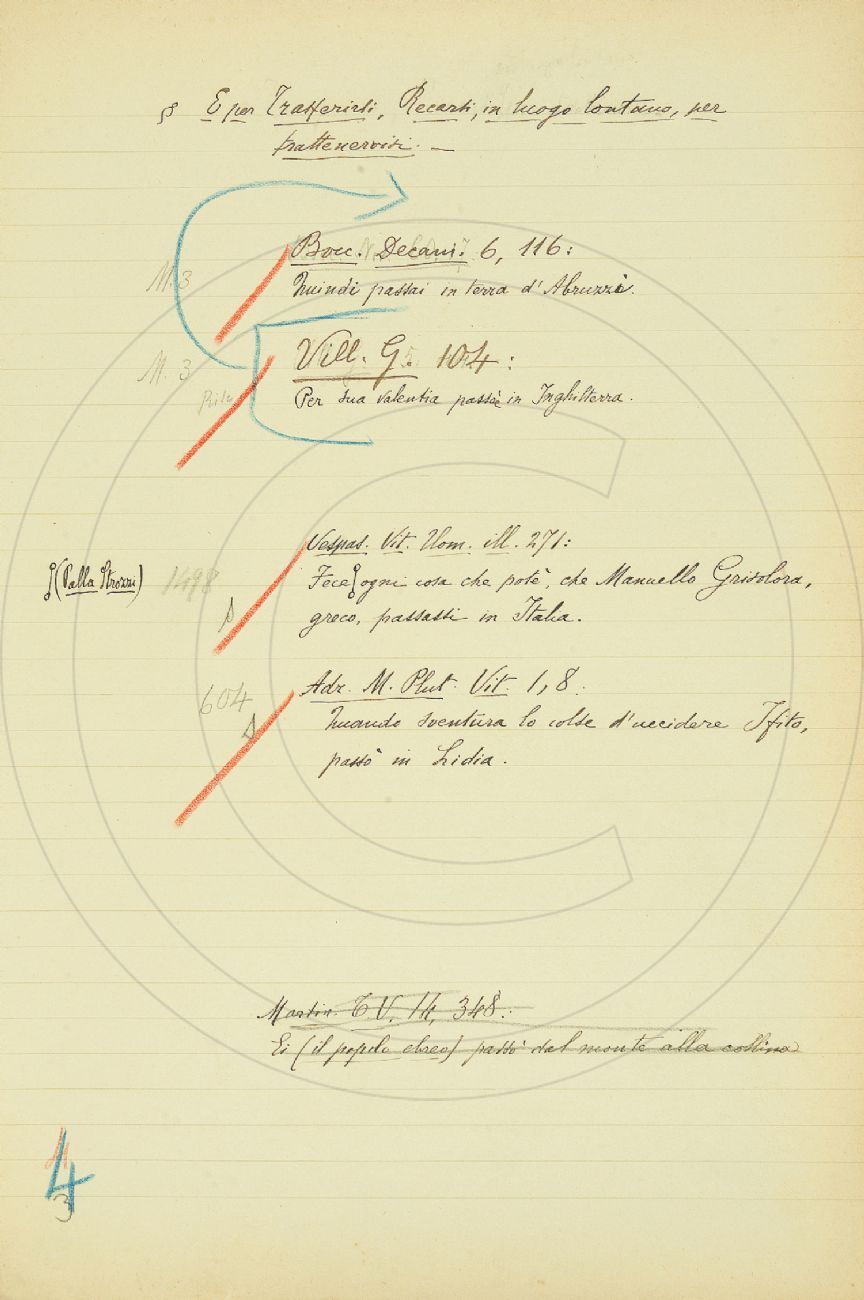 § E per Trasferirsi, Recarsi, in luogo lontano, per
trattenervisi. —
Bocc. Decam. 6, 116:
M. 3
Quindi passai in terra d' Abruzzi.
Vill. G. 104:
M. 3
Per sua valentia passò in Inghilterra.
Vespas. Vit. Uom. ill. 271:
(Palla Strozzi) 1498 Fece ogni cosa che potè, che Manuello Grisolora,
greco, passassi in Italia.
604 Adr. M. Plut. Vit. 1, 8.
Quando sventura lo colse d'uccidere Ifito,
passò in Lidia.
Martin. T. V. 14, 348:
Ei (il popolo ebreo) passò dal monte alla collina
4
3